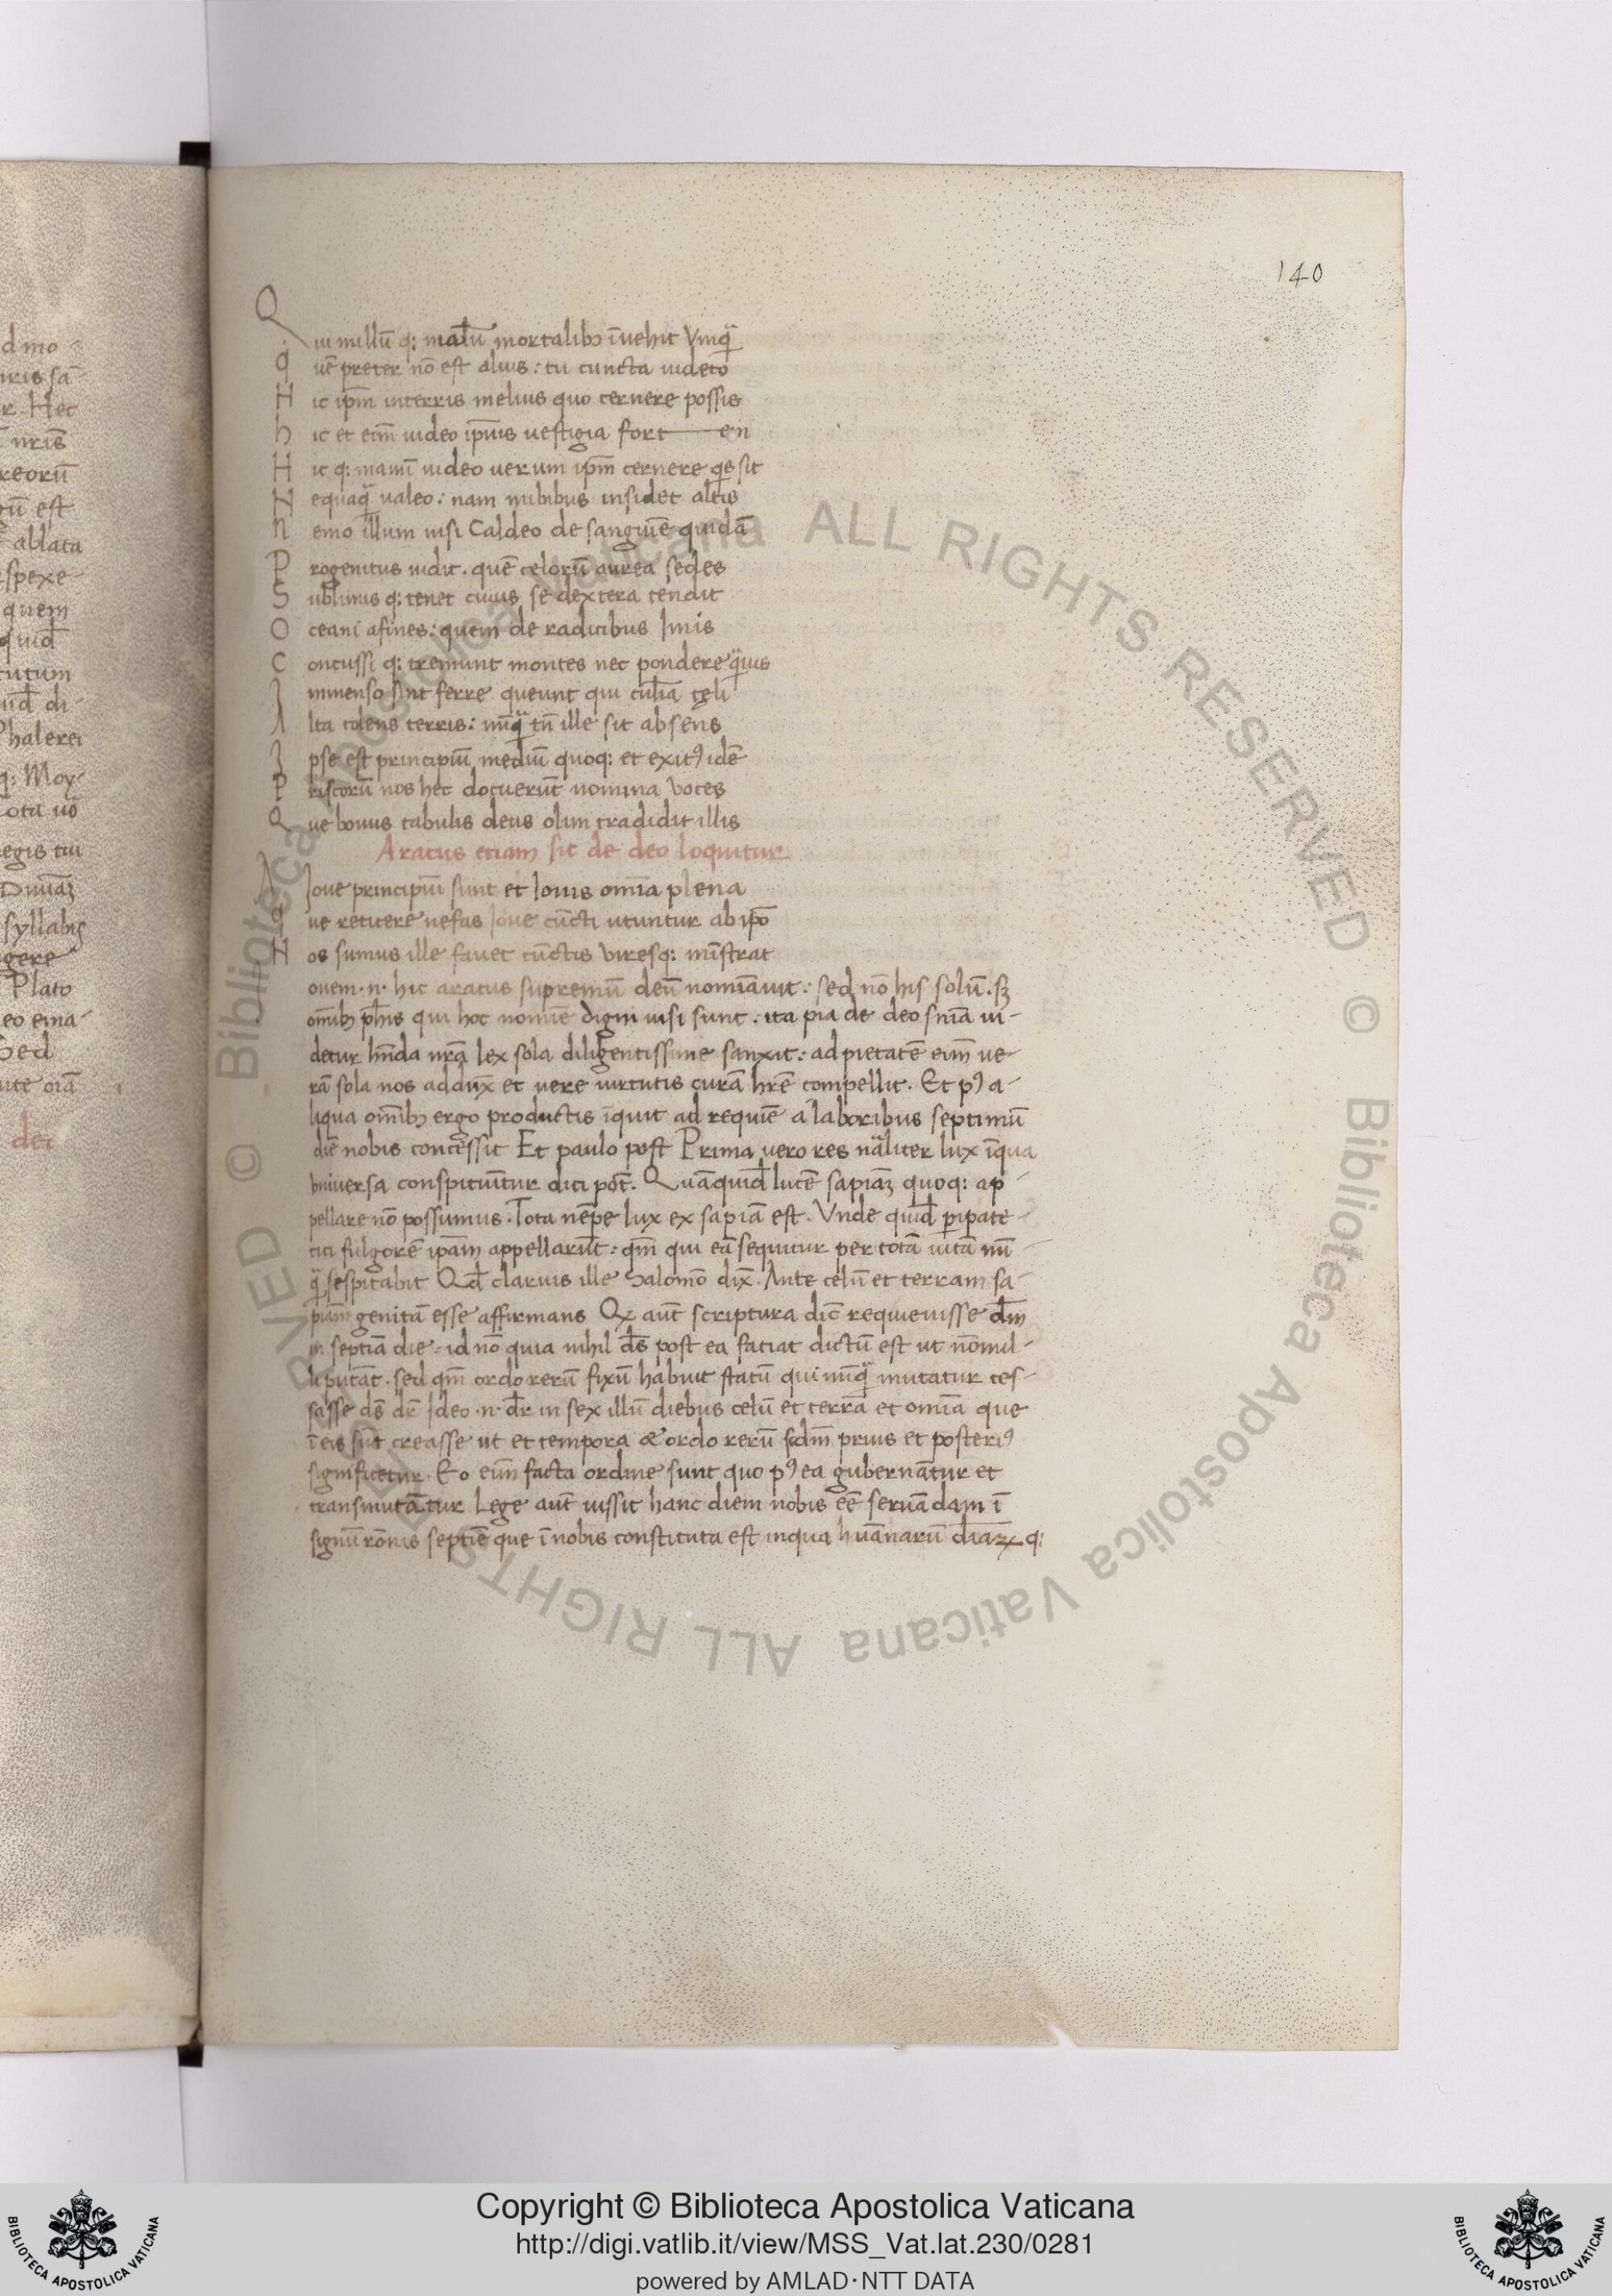 140
Qui nullū q: malū mortalib; īuehit vmq̄
q uē preter nō est alius: tu cuncta uideto
H ic ip̄m interris melius quo cernere possis
h ic et eim̄ uideo ip̄ius uestigia fort en
H ic q: manū uideo uerum ip̄m cernere q̄ sit
N equaq̄ ualeo: nam nubibus insidet altis
n emo illum nisi Caldeo de sanguīe quidā
P rogenitus uidit. quē celorū aurea sedes
S ublimis q: tenet cuius se dextera tendit
O ceani afines: quem de radicibus Imis
C oncussi q: tremunt montes nec pondere q̄uis
I mmenso sint ferre queunt qui culm̄a celi
A lta colens terris: nūq̄ tn̄ ille sit absens
I pse est principiū mediū quoq: et exitꝰ idē
P riscorū nos hec docuerūt nomina voces
Q ue bonus tabulis deus olim tradidit illis
Aratus etiam sic de deo loquitur
A Ioue principiū sunt et Iouis omīa plena
q ue reticere nefas Ioue cūcti utuntur ab ip̄o
H os sumus ille fauet cūctis viresq: mīstrat
ouem .n. hic aratus supremū deū nomīauit: sed nō his solū. s;
om̄ib; ph̄is qui hoc nomīe digni uisi sunt: ita pia de deo sn̄ia ui-
detur hn̄da nr̄a lex sola diligentissime sanxit: ad pietatē eim̄ ue
rā sola nos addux̄ et uere uirtutis curā hr̄e compellit. Et pꝰ a-
liqua om̄ib; ergo productis īquit ad requiē a laboribus septimū
diē nobis concessit Et paulo post Prima uero res nāliter lux īqua
vniuersa conspiciūtur dici pōt. Quāquid̄ lucē sapiāʒ quoq: ap-
pellare nō possumus. Tota nēpe lux ex sapiā est. Vnde quid̄ peripate-
tici fulgorē ip̄am appellarūt: qm̄ qui eā sequitur per totā uitā nū-
q̄ sespitabit Qd̄ clarius ille Salomō dix̄. Ante celū et terram sa-
piām genitā esse affirmans Qꝫ aūt scriptura dic̄ requieuisse dm̄
in septīa die. id nō quia nihil ds̄ post ea faciat dictū est ut nōnul-
li putāt. sed qm̄ ordo rerū fixū habuit statū qui nūq̄ mutatur ces-
sasse ds̄ dr̄ Ideo .n. dr̄ in sex illū diebus celū et terrā et omīa que
ī eis sūt creasse ut et tempora & ordo rerū scdm̄ prius et posteriꝰ
significetur. Eo eim̄ facta ordine sunt quo pꝰ ea gubernātur et
transmutātur Lege aūt iussit hanc diem nobis eē seruādam ī
signū rōnis septīe que ī nobis constituta est inqua huānarū diāꝝ q:
Copyright © Biblioteca Apostolica Vaticana
http://digi.vatlib.it/view/MSS_Vat.lat.230/0281
powered by AMLAD·NTT DATA